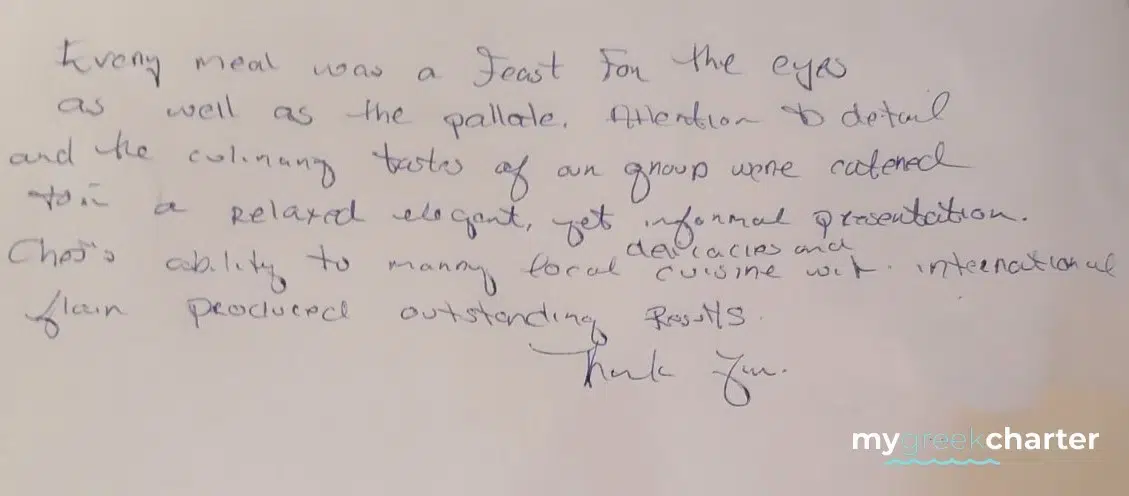 Every meal was a feast for the eyes
as well as the pallate. Attention to detail
and the culinary tastes of our group were catered
to in a relaxed elegant, yet informal presentation.
Chef's ability to marry local delicacies and cuisine with international
flair produced outstanding results.
Thank you.
mygreekcharter